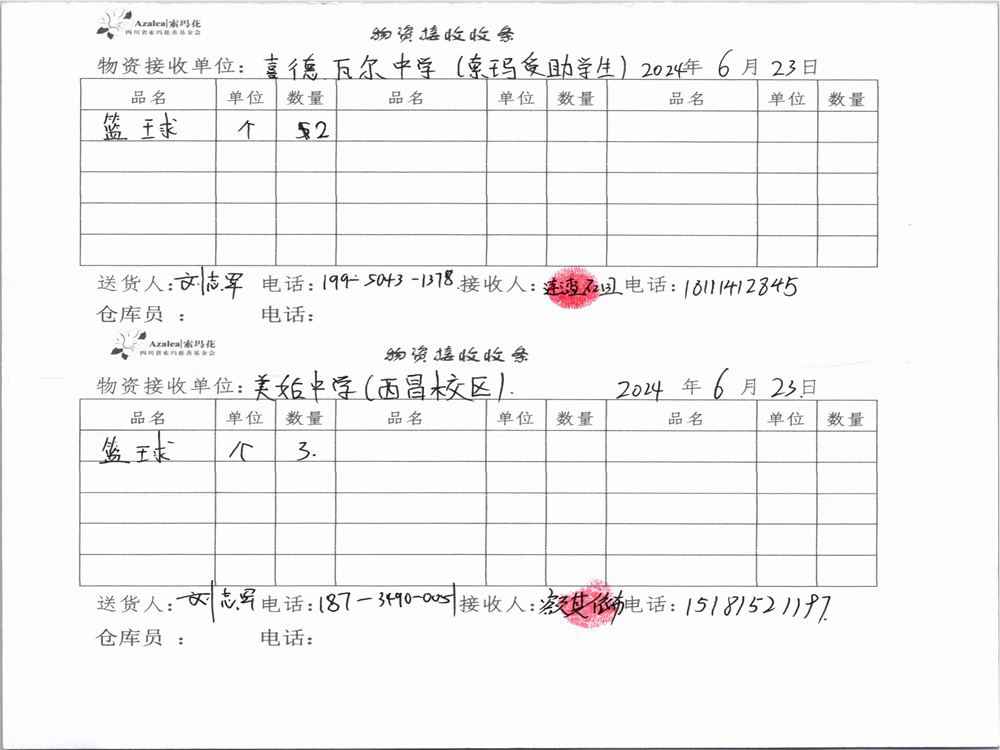 Azalea|索玛花
四川省索玛慈善基金会
物资接收收条
物资接收单位：喜德瓦尔中学（索玛受助学生）2024年 6 月 23日
品名 单位 数量 品名 单位 数量 品名 单位 数量
篮球 个 2
送货人：刘志军 电话：199-5043-1378 接收人： 电话：18111412845
仓库员 ： 电话：
Azalea|索玛花
四川省索玛慈善基金会
物资接收收条
物资接收单位：美姑中学（西昌校区）. 2024 年 6 月 23.日
品名 单位 数量 品名 单位 数量 品名 单位 数量
篮球 个 3.
送货人：刘志军 电话：187-3490-0051 接收人： 电话：15181521197.
仓库员 ： 电话：